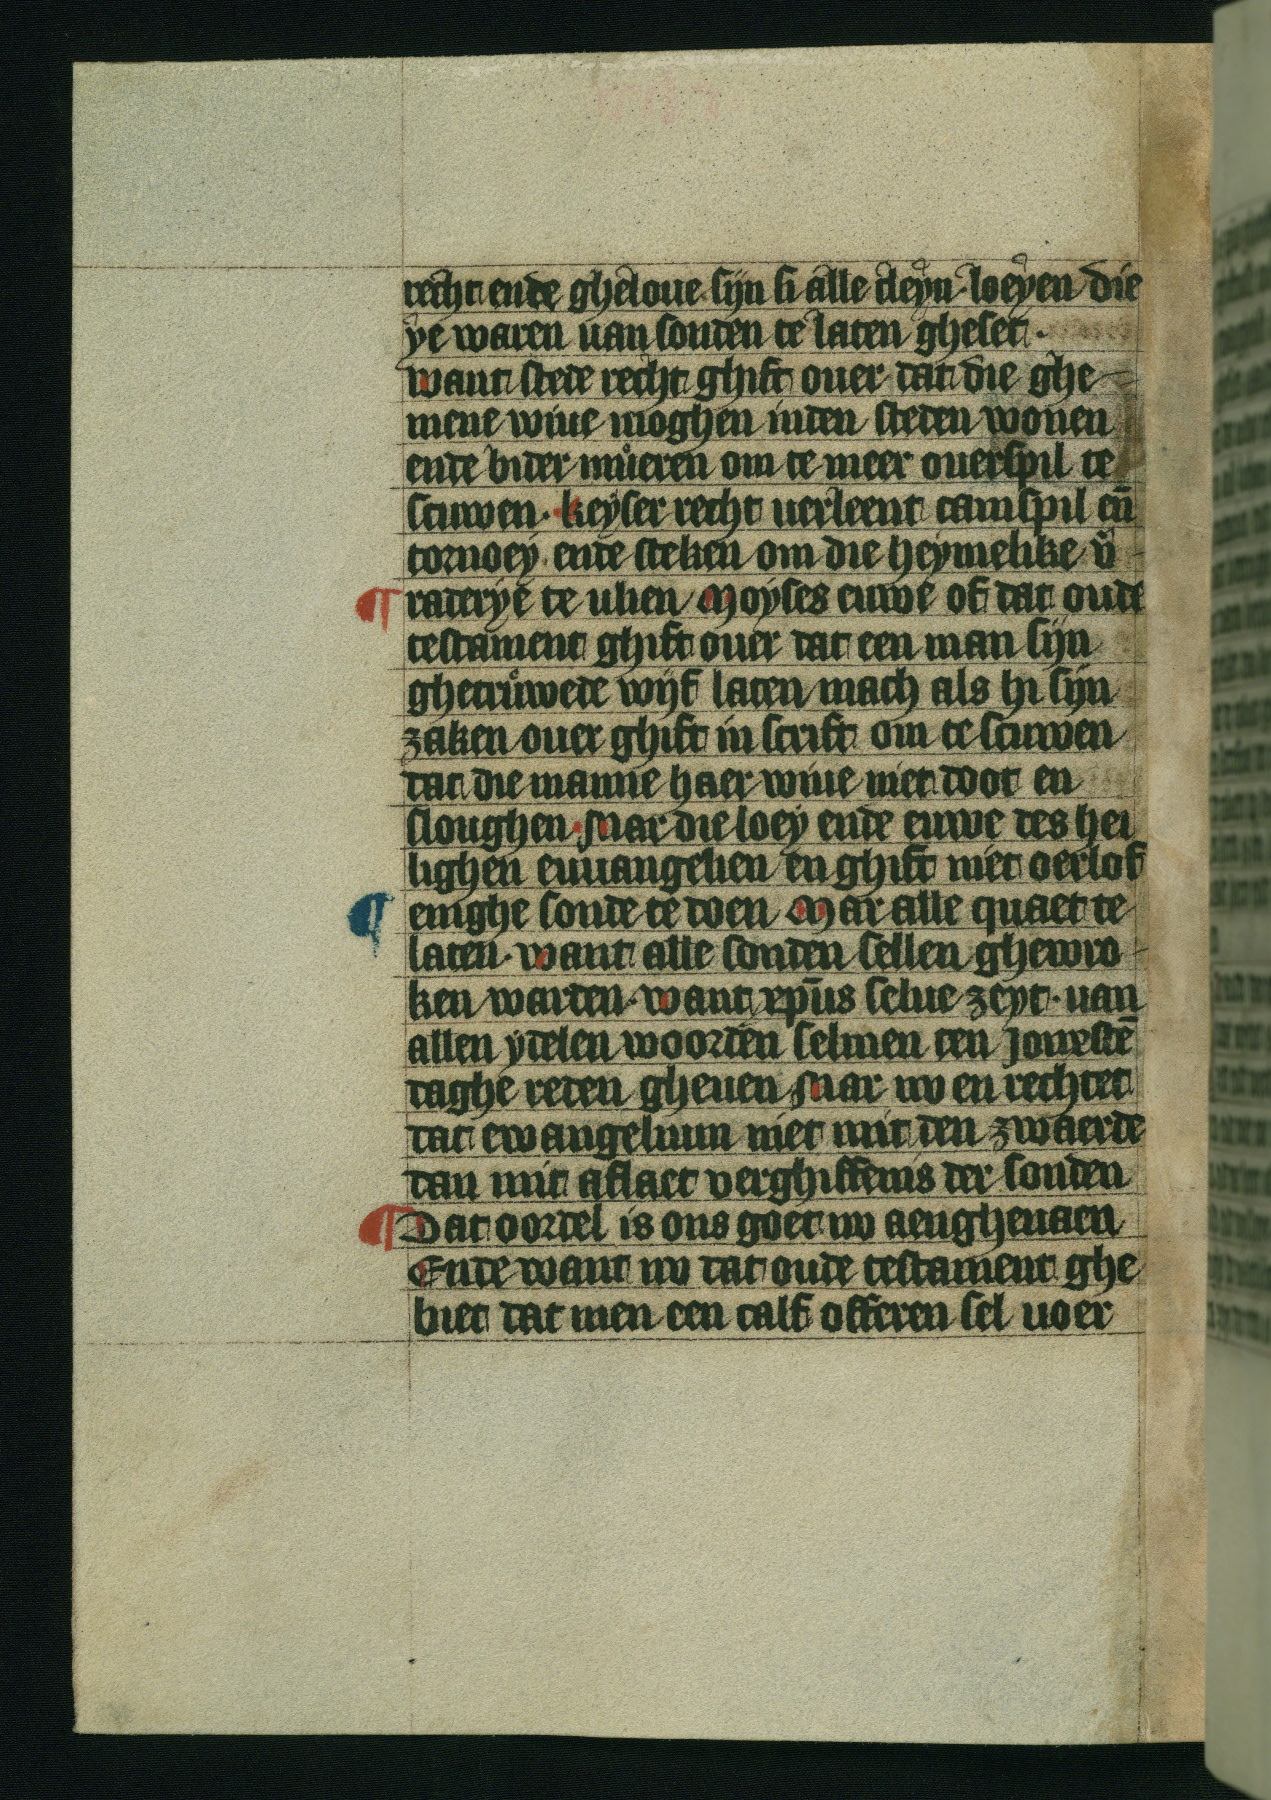 recht ende gheloue sijn si alle cleyn loeyen die
ye waren uan sonden te laten gheset ·
want stede recht ghift ouer dat die ghe
mene wiue moghen inden steden wonen
ende buer muͦeren om te meer ouerspil te
scuwen · keyser recht uerleent campspil en̄
tornoey ende steken om die heymelike v̄
raderye te ulien Moyses euwe of dat oude
testament ghift ouer dat een man sijn
ghetruͦwede wijf laten mach als hi sijn
zaken ouer ghift in scrift om te scuwen
dat die manne haer wiue niet doot en
sloughen · Mar die loey ende euwe des hei
lighen euuangelien en ghift niet oerlof
enighe sonde te doen Mar alle quaet te
laten · want alle sonden sellen ghewro
ken warden · want xp̄us selue zeyt · uan
allen ydelen woorden selmen ten Jonestē
daghe reden gheuen Mar nv en rechtet
dat ewangelium niet mit den zwaerde
dan mit aflaet verghiffenis der sonden
Dat oordel is ons goet nv aenghenaen
Ende want nv dat oude testament ghe
biet dat men een calf offeren sel uoer